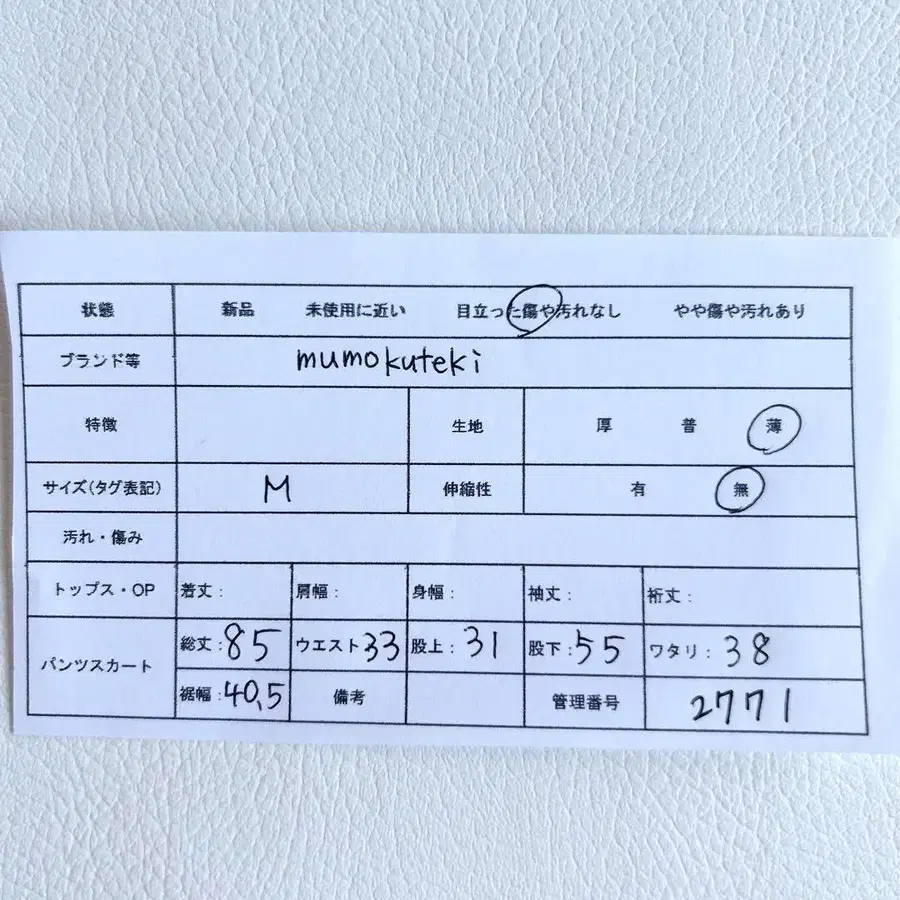 状態 新品 未使用に近い 目立った傷や汚れなし やや傷や汚れあり
ブランド等 mumokuteki
特徴 生地 厚 普 薄
サイズ(タグ表記) M 伸縮性 有 無
汚れ・傷み
トップス・OP 着丈: 肩幅: 身幅: 袖丈: 裄丈:
パンツスカート 総丈:85 ウエスト33 股上:31 股下:55 ワタリ:38
裾幅:40,5 備考 管理番号 2771